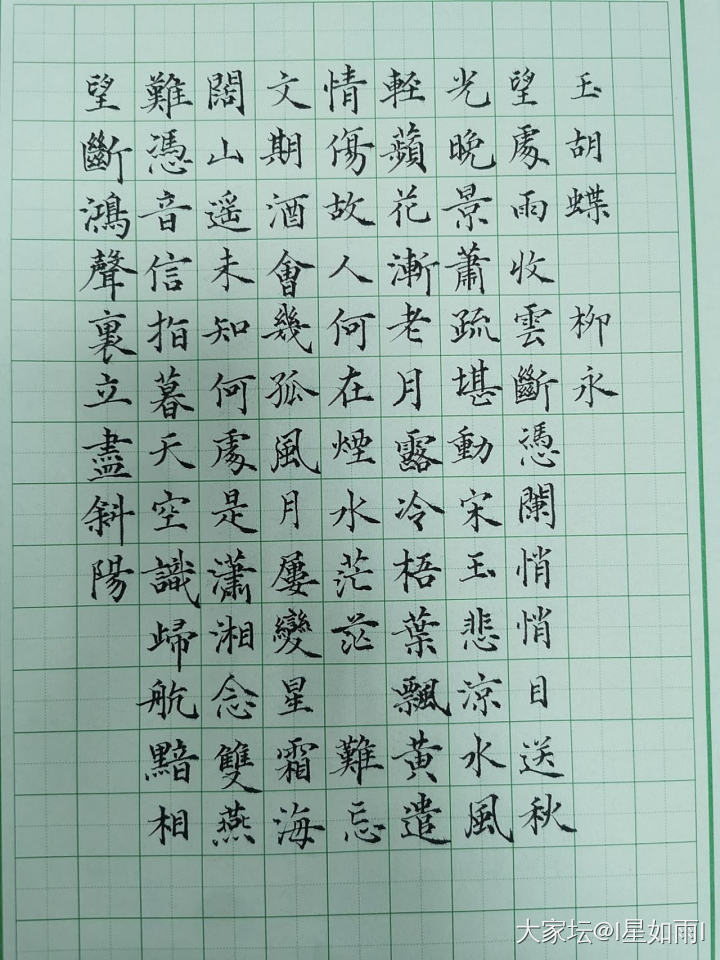 玉胡蝶 柳永
望處雨收雲斷憑闌悄悄目送秋
光晚景蕭疏堪動宋玉悲涼水風
輕蘋花漸老月露冷梧葉飄黃遣
情傷故人何在煙水茫茫 難忘
文期酒會幾孤風月屢變星霜海
闊山遥未知何處是瀟湘念雙燕
難憑音信指暮天空識歸航黯相
望斷鴻聲裏立盡斜陽
大家坛@I星如雨I